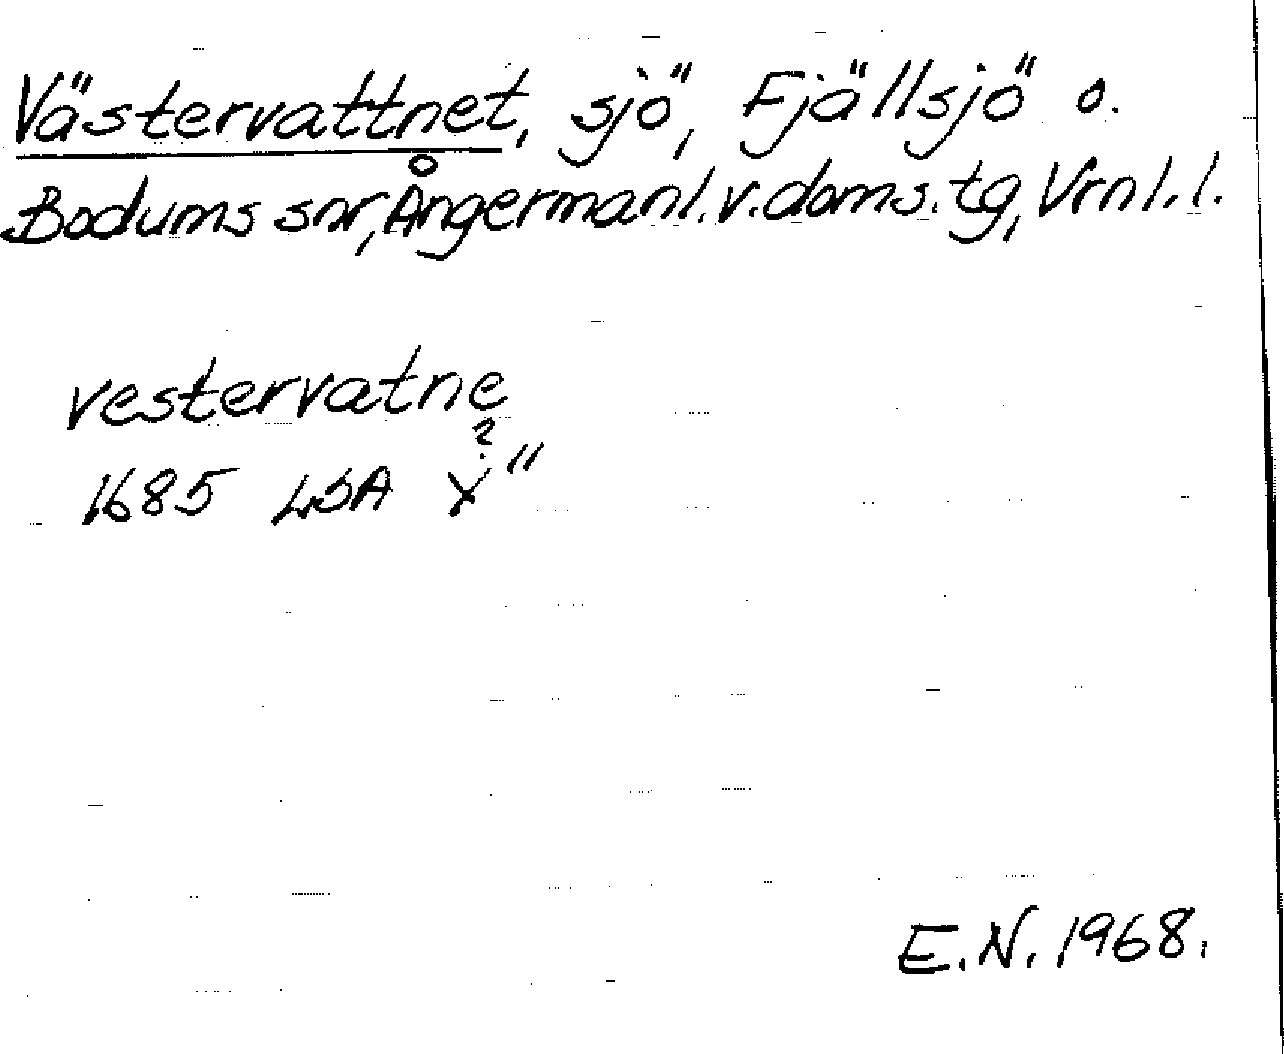 Västervattnet, sjö, Fjällsjö o.
Bodums snr, Ångermanl. v. doms. tg, Vrnl. l.
vestervatne
1685 LSA
E.N. 1968.